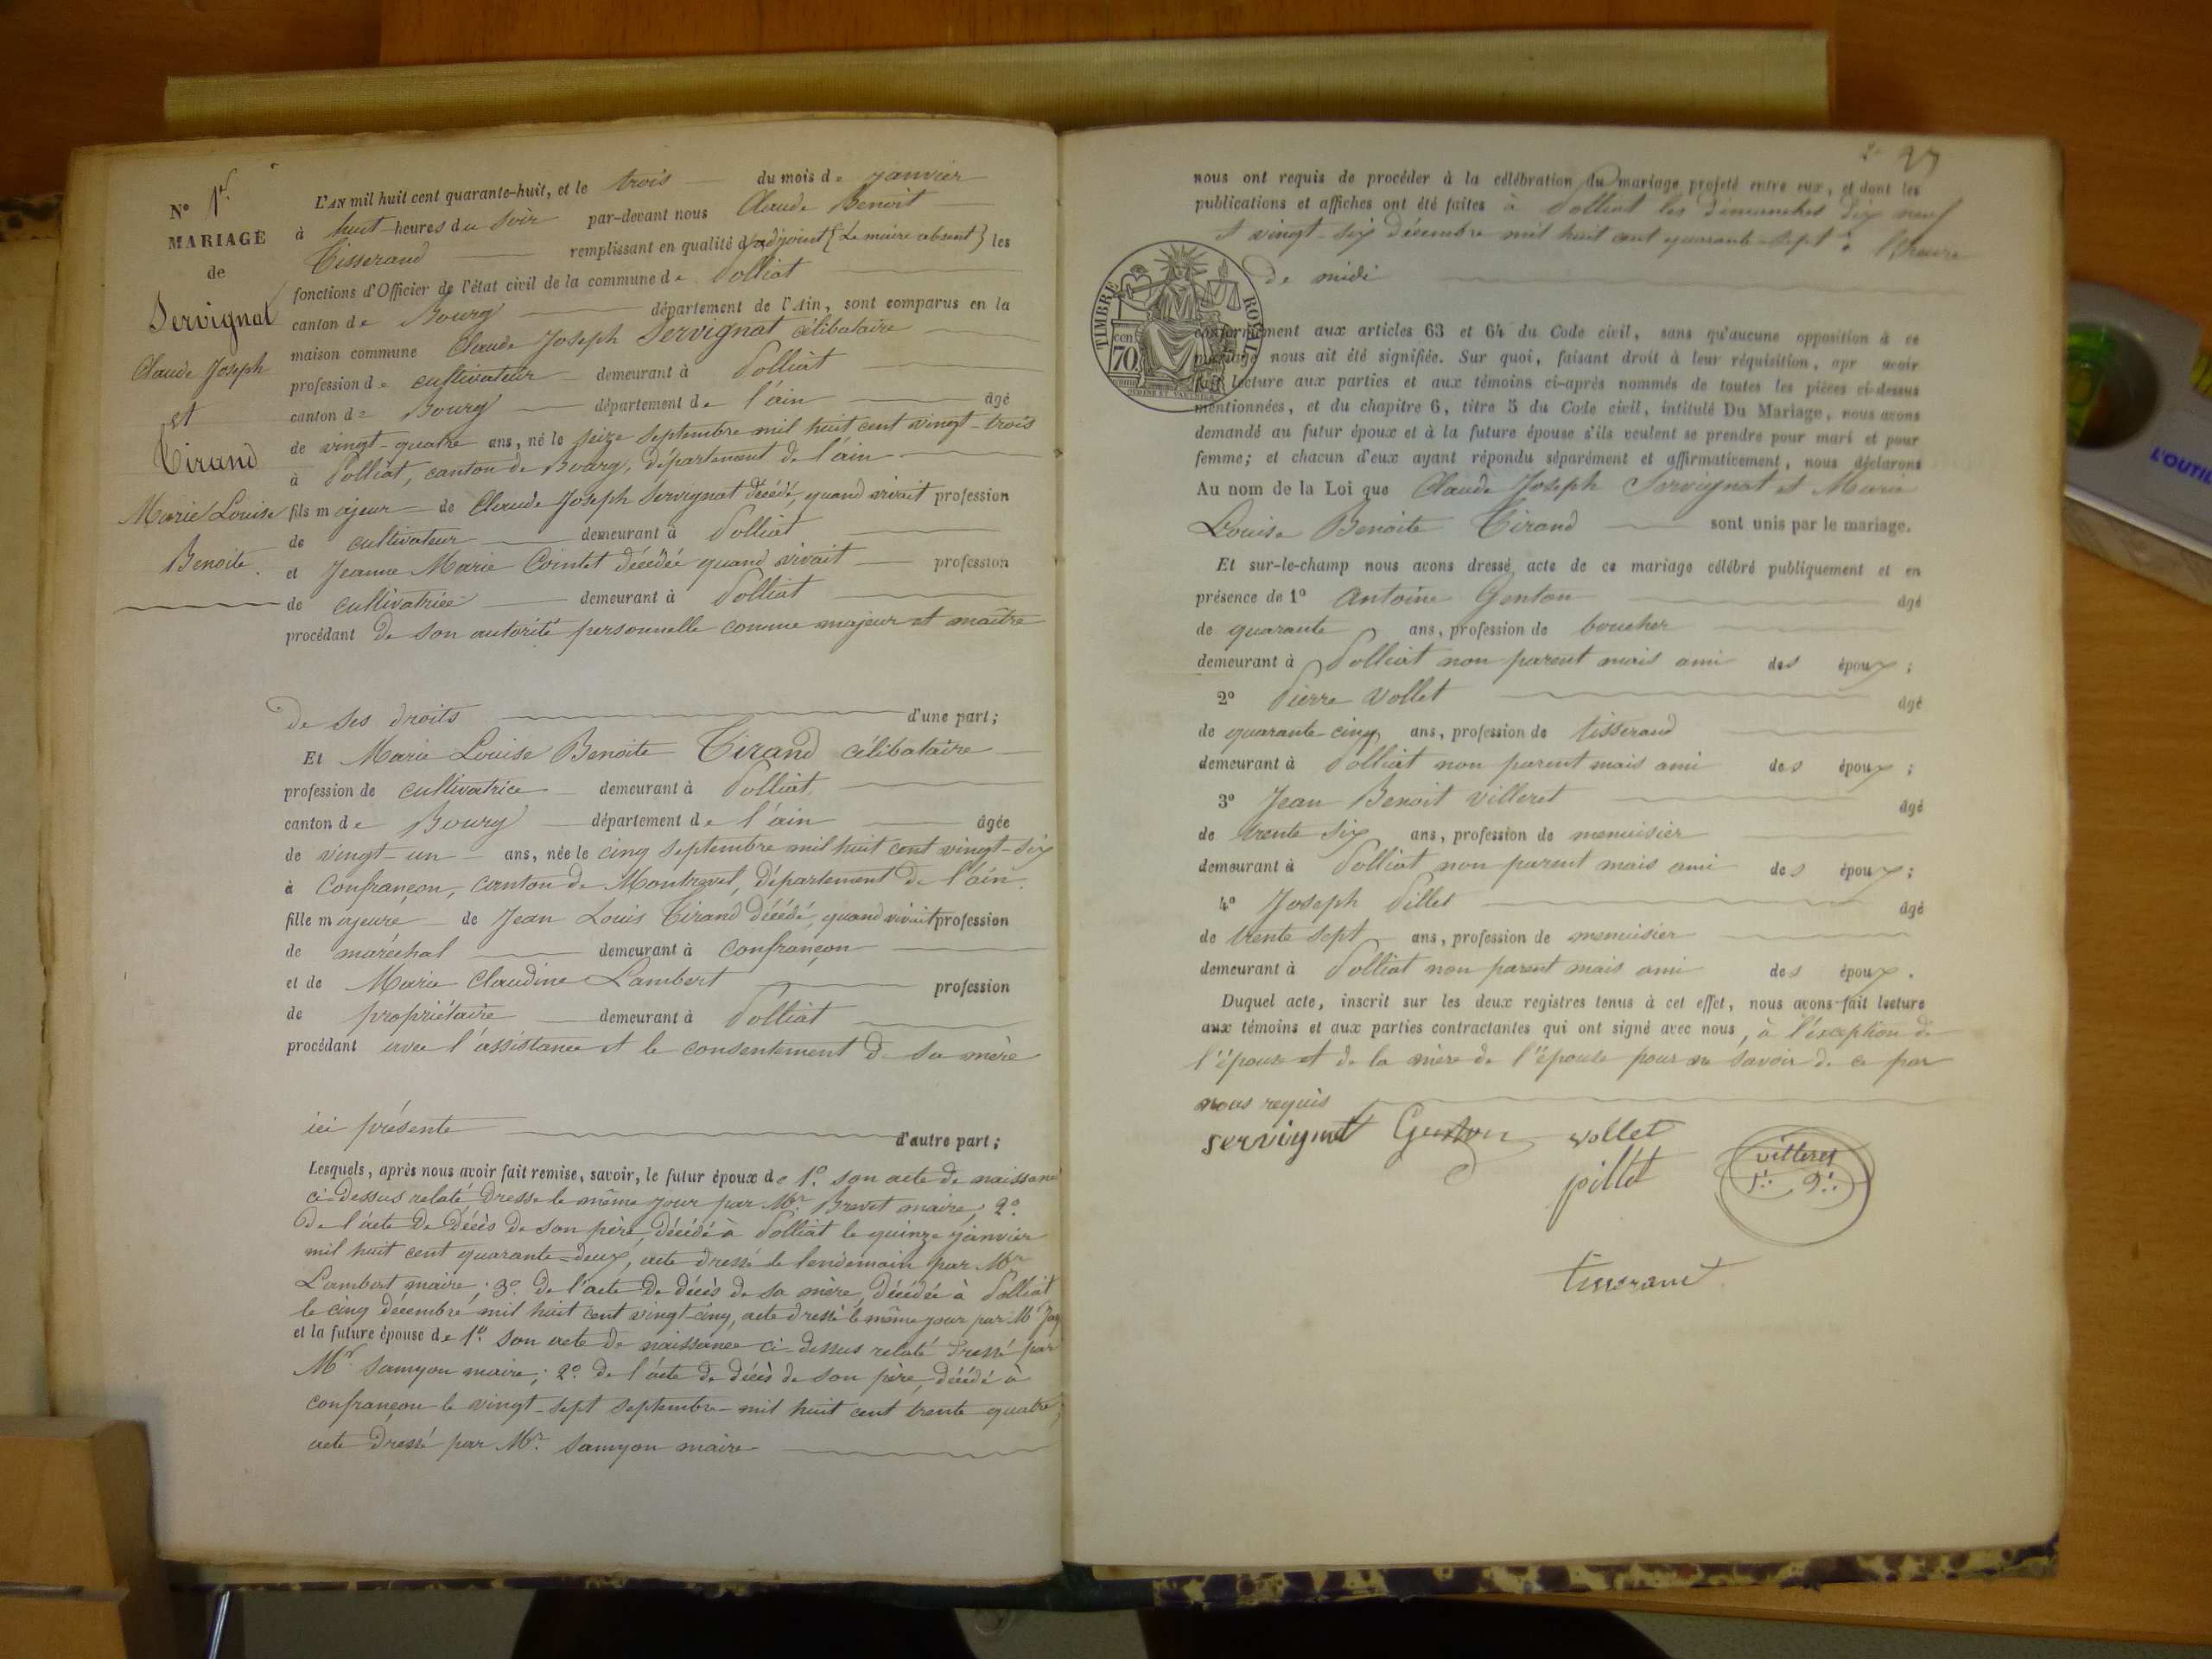 N° 1er
MARIAGE
de
Servignat
Claude Joseph
et
Tirand
Marie Louise
Benoite.
L'AN mil huit cent quarante-huit, et le trois du mois de janvier
à huit heures du soir par-devant nous Claude Benoit
Tisserand remplissant en qualité d'adjoint (Le maire absent) les
fonctions d'Officier de l'état civil de la commune de Polliat
canton de Bourg département de l'Ain, sont comparus en la
maison commune Claude Joseph Servignat célibataire
profession de cultivateur demeurant à Polliat
canton de Bourg département de l'ain âgé
de vingt-quatre ans, né le seize septembre mil huit cent vingt-trois
à Polliat, canton de Bourg, département de l'ain
fils majeur de Claude Joseph Servignat décédé, quand vivait profession
de cultivateur demeurant à Polliat
et Jeanne Marie Cointet décédée quand vivait profession
de cultivatrice demeurant à Polliat
procédant de son autorité personnelle comme majeur et maître
de ses droits d'une part;
Et Marie Louise Benoite Tirand célibataire
profession de cultivatrice demeurant à Polliat,
canton de Bourg département de l'ain âgée
de vingt-un ans, née le cinq septembre mil huit cent vingt-six
à Confrançon, canton de Montrevel, département de l'ain.
fille majeure de Jean Louis Tirand décédé, quand vivait profession
de maréchal demeurant à Confrançon
et de Marie Claudine Lambert profession
de propriétaire demeurant à Polliat
procédant avec l'assistance et le consentement de sa mère
ici présente d'autre part;
Lesquels, après nous avoir fait remise, savoir, le futur époux de 1° son acte de naissance
ci-dessus relaté dressé le même jour par Mr. Brevet maire; 2°
de l'acte de décès de son père, décédé à Polliat le quinze janvier
mil huit cent quarante-deux, acte dressé le lendemain par Mr
Lambert maire; 3° de l'acte de décès de sa mère, décédée à Polliat
le cinq décembre mil huit cent vingt-cinq, acte dressé le même jour par Mr
et la future épouse de 1° son acte de naissance ci-dessus relaté dressé par
Mr. Samyon maire; 2° de l'acte de décès de son père, décédé à
confrançon le vingt-sept septembre mil huit cent trente quatre,
acte dressé par Mr. Samyon maire
27
nous ont requis de procéder à la célébration du mariage projeté entre eux, et dont les
publications et affiches ont été faites à Polliat les dimanches dix neuf
et vingt-six décembre mil huit cent quarante-sept à l'heure
de midi
TIMBRE ROYAL
70 cen
conformément aux articles 63 et 64 du Code civil, sans qu'aucune opposition à ce
mariage nous ait été signifiée. Sur quoi, faisant droit à leur réquisition, apr avoir
fait lecture aux parties et aux témoins ci-après nommés de toutes les pièces ci-dessus
mentionnées, et du chapitre 6, titre 5 du Code civil, intitulé Du Mariage, nous avons
demandé au futur époux et à la future épouse s'ils veulent se prendre pour mari et pour
femme; et chacun d'eux ayant répondu séparément et affirmativement, nous déclarons
Au nom de la Loi que Claude Joseph Servignat et Marie
Louise Benoite Tirand sont unis par le mariage.
Et sur-le-champ nous avons dressé acte de ce mariage célébré publiquement et en
présence de 1° Antoine Genton âgé
de quarante ans, profession de boucher
demeurant à Polliat non parent mais ami des époux;
2° Pierre Vollet âgé
de quarante-cinq ans, profession de tisserand
demeurant à Polliat non parent mais ami des époux;
3° Jean Benoit Villeret âgé
de trente six ans, profession de menuisier
demeurant à Polliat non parent mais ami des époux;
4° Joseph Pillet âgé
de trente sept ans, profession de menuisier
demeurant à Polliat non parent mais ami des époux.
Duquel acte, inscrit sur les deux registres tenus à cet effet, nous avons fait lecture
aux témoins et aux parties contractantes qui ont signé avec nous, à l'exception de
l'épouse et de la mère de l'épouse pour ne savoir de ce par
nous requis
servignat Genton vollet
pillet villeret
tisserand
L'OUTIL